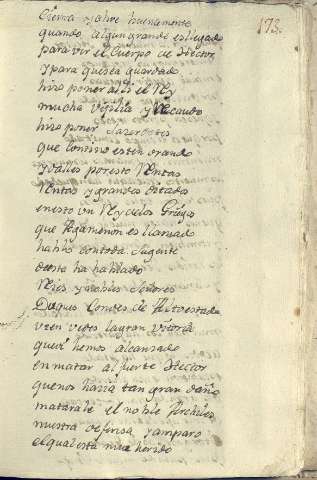 cierra y abre buenamente
quando algun grande es llegado
para vir el Cuerpo de Hector
y para questa guardado
hizo poner alli el Rey
mucha vigilia y Recaudo
hizo poner sazerdotes
que contino esten orando
y dalles por esto Rentas
Rentas y grandes ditados
en esto un Rey de los Griegos
que Agamenon es llamado
habló con toda su gente
desta ha hablado
Reÿs y nobles Señores
Duques Condes de Alto estado
vien vedes la gran vitoria
que hemos alcanzado
en matar al fuerte Hector
que nos hazia tan gran daño
matarale el noble Archiles
nuestra defensa y amparo
el qual esta mui herido
193.